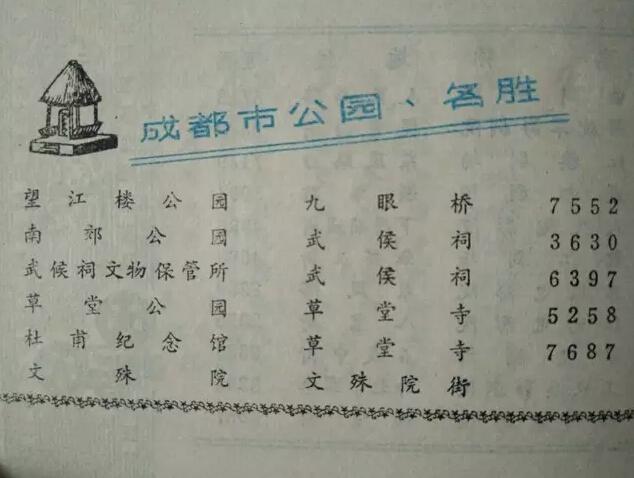 成都市公园、名胜
望江楼公园 九眼桥 7552
南郊公园 武侯祠 3630
武侯祠文物保管所 武侯祠 6397
草堂公园 草堂寺 5258
杜甫纪念馆 草堂寺 7687
文殊院 文殊院街